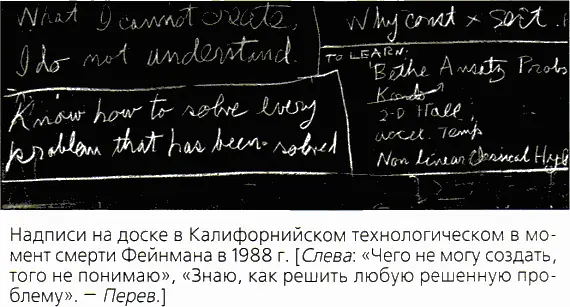 What I cannot create,
I do not understand.
Know how to solve every
problem that has been solved
Why const × sort .
TO LEARN:
Bethe Ansatz Probs
Kondo
2-D Hall
accel. Temp
Non linear Classical Hyd
Надписи на доске в Калифорнийском технологическом в мо-
мент смерти Фейнмана в 1988 г. [Слева: «Чего не могу создать,
того не понимаю», «Знаю, как решить любую решенную про-
блему». — Перев.]